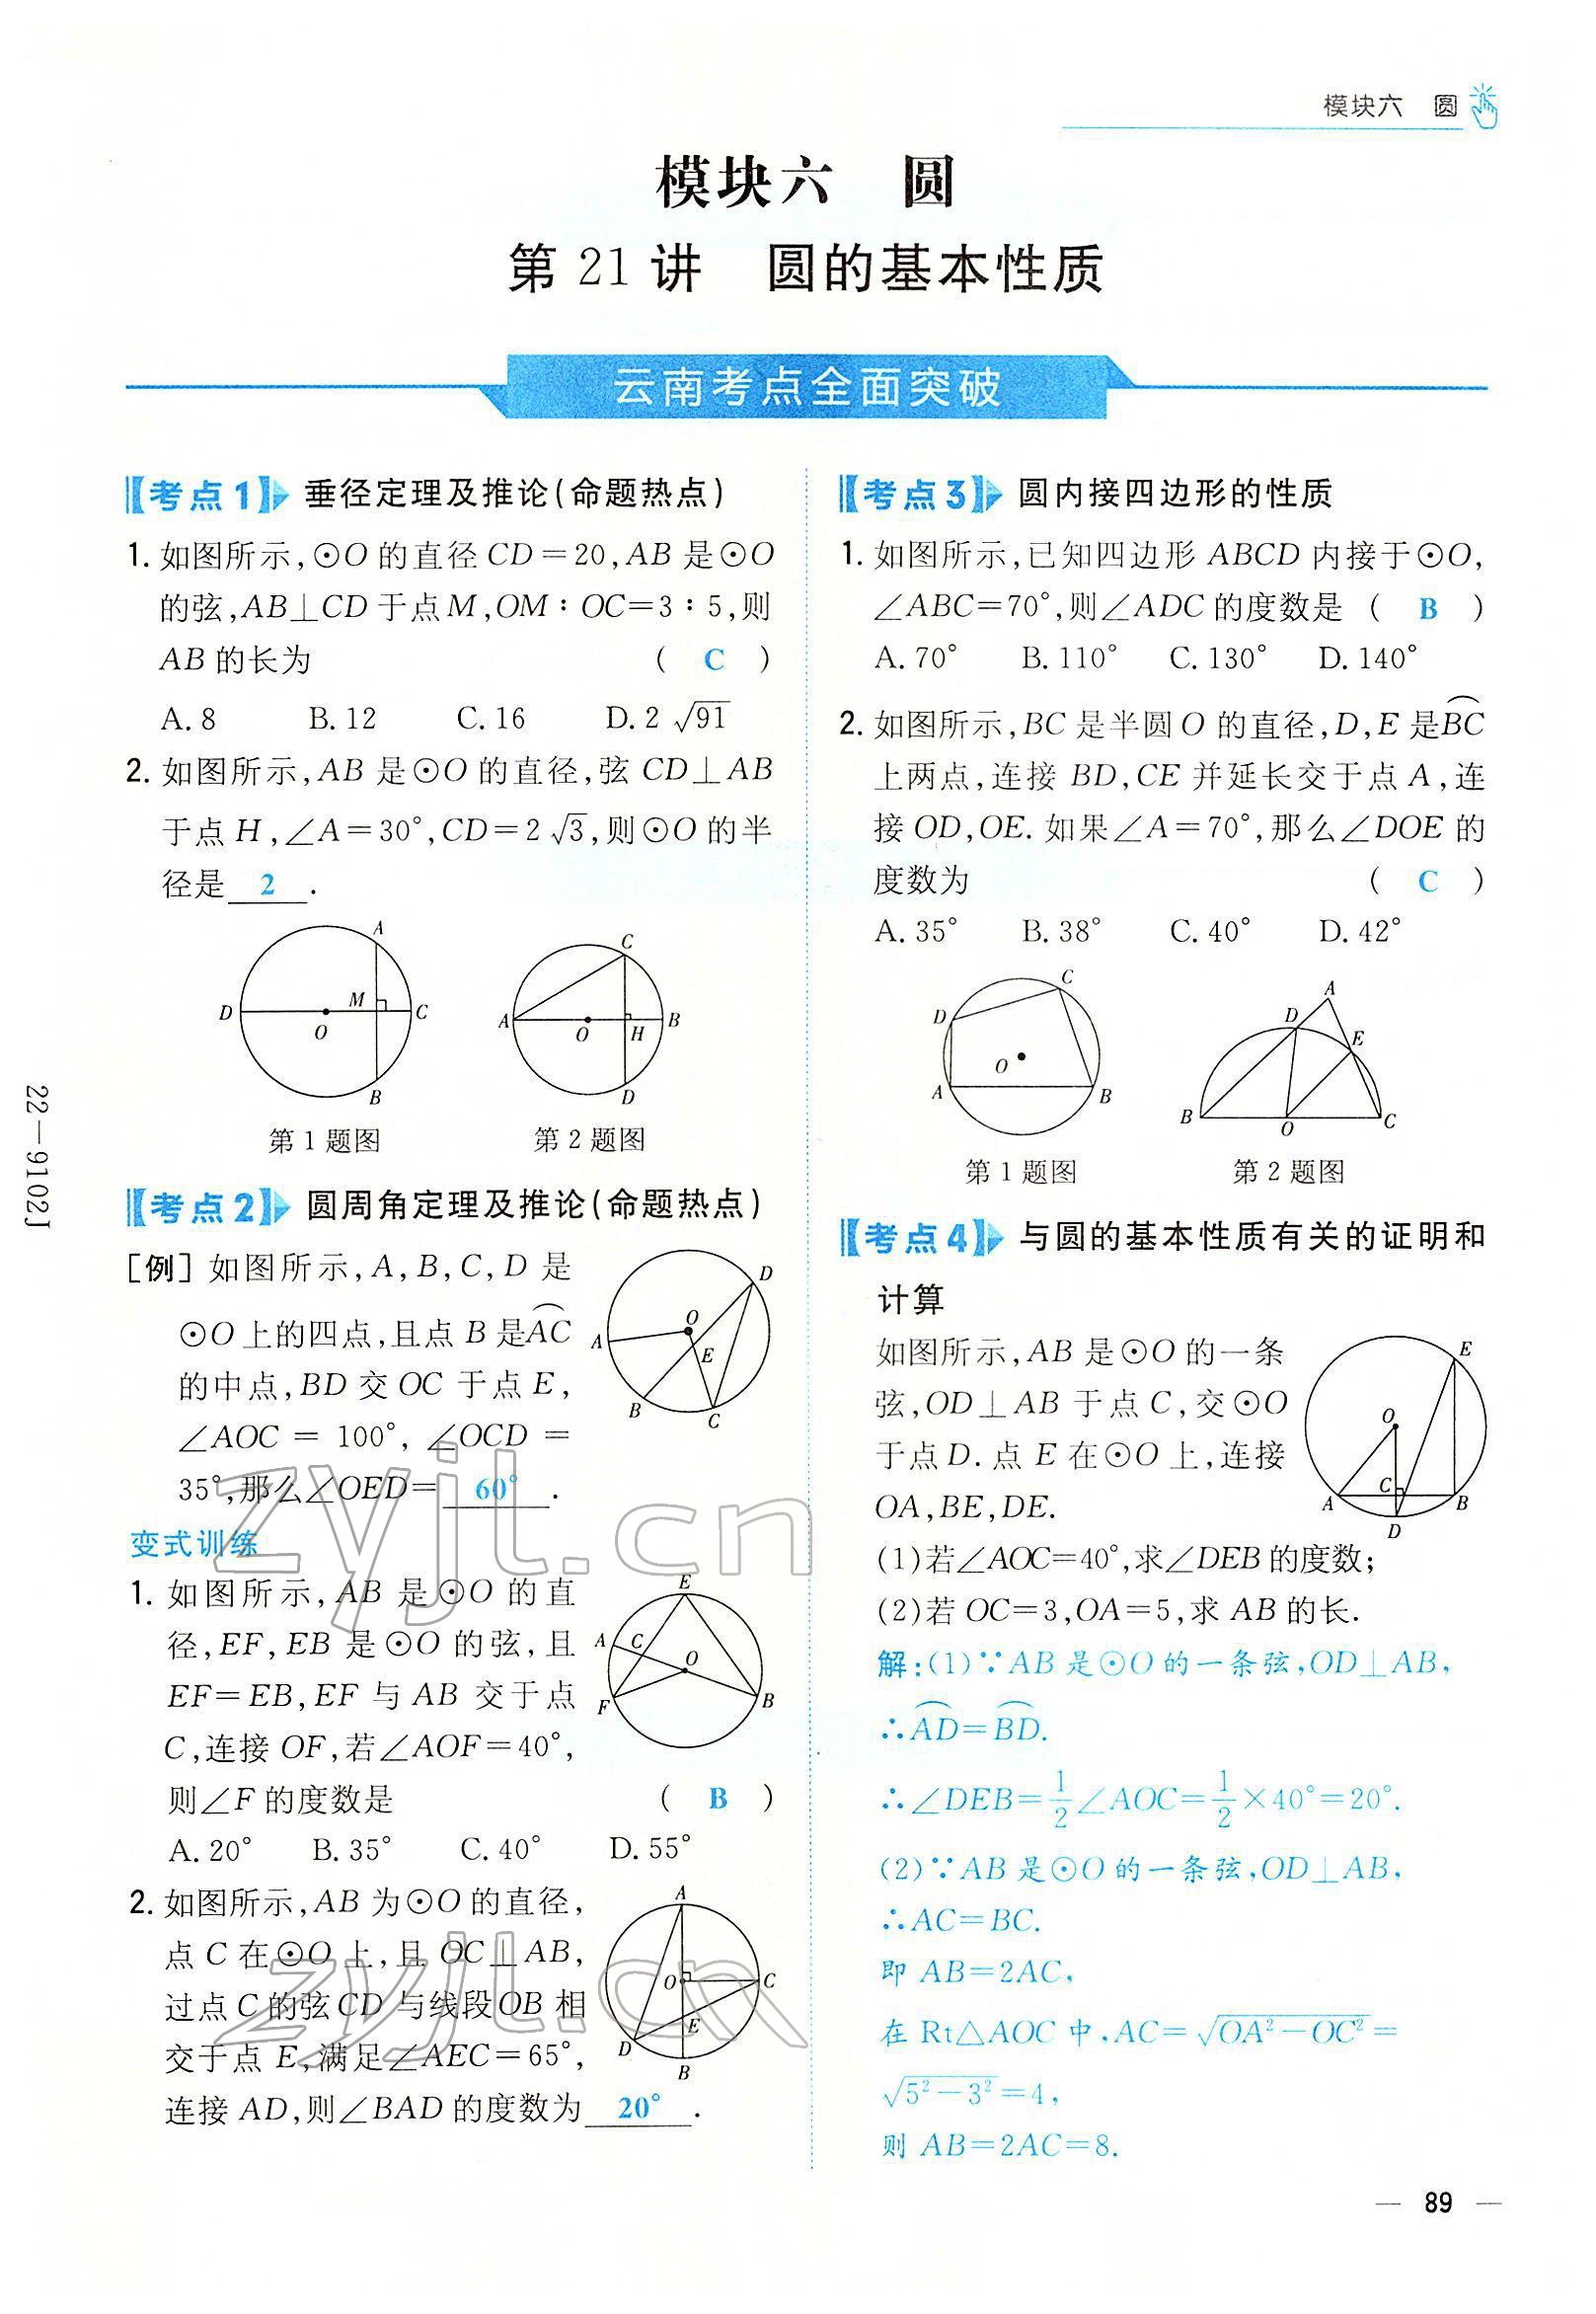 模块六 圆
模块六 圆
第 21 讲 圆的基本性质
云南考点全面突破
【考点1】 垂径定理及推论(命题热点)
1. 如图所示,⊙O 的直径 CD=20,AB 是⊙O
的弦,AB⊥CD 于点 M,OM∶OC=3∶5,则
AB 的长为 ( C )
A. 8 B. 12 C. 16 D. 2√91
2. 如图所示,AB 是⊙O 的直径,弦 CD⊥AB
于点 H,∠A=30°,CD=2√3,则⊙O 的半
径是 2 .
A
D M C
O
B
第 1 题图
C
A O H B
D
第 2 题图
【考点2】 圆周角定理及推论(命题热点)
[例] 如图所示,A,B,C,D 是
⊙O 上的四点,且点 B 是⌒AC
的中点,BD 交 OC 于点 E,
∠AOC = 100°, ∠OCD =
35°,那么∠OED= 60° .
D
O
A
E
B
C
变式训练
1. 如图所示,AB 是⊙O 的直
径,EF,EB 是⊙O 的弦,且
EF=EB,EF 与 AB 交于点
C,连接 OF,若∠AOF=40°,
则∠F 的度数是 ( B )
A. 20° B. 35° C. 40° D. 55°
E
A C
O
F B
2. 如图所示,AB 为⊙O 的直径,
点 C 在⊙O 上,且 OC⊥AB,
过点 C 的弦 CD 与线段 OB 相
交于点 E,满足∠AEC=65°,
连接 AD,则∠BAD 的度数为 20° .
A
O C
E
D
B
【考点3】 圆内接四边形的性质
1. 如图所示,已知四边形 ABCD 内接于⊙O,
∠ABC=70°,则∠ADC 的度数是 ( B )
A. 70° B. 110° C. 130° D. 140°
2. 如图所示,BC 是半圆 O 的直径,D,E 是⌒BC
上两点,连接 BD,CE 并延长交于点 A,连
接 OD,OE. 如果∠A=70°,那么∠DOE 的
度数为 ( C )
A. 35° B. 38° C. 40° D. 42°
C
D
O
A B
第 1 题图
A
D
E
B O C
第 2 题图
【考点4】 与圆的基本性质有关的证明和
计算
如图所示,AB 是⊙O 的一条
弦,OD⊥AB 于点 C,交⊙O
于点 D. 点 E 在⊙O 上,连接
OA,BE,DE.
(1)若∠AOC=40°,求∠DEB 的度数;
(2)若 OC=3,OA=5,求 AB 的长.
E
O
C
A B
D
解:(1)∵AB 是⊙O 的一条弦,OD⊥AB,
∴⌒AD=⌒BD.
∴∠DEB=1/2∠AOC=1/2×40°=20°.
(2)∵AB 是⊙O 的一条弦,OD⊥AB,
∴AC=BC.
即 AB=2AC,
在 Rt△AOC 中,AC=√(OA²-OC²)=
√(5²-3²)=4,
则 AB=2AC=8.
22—9102J
— 89 —
zyjl.cn
zyjl.cn